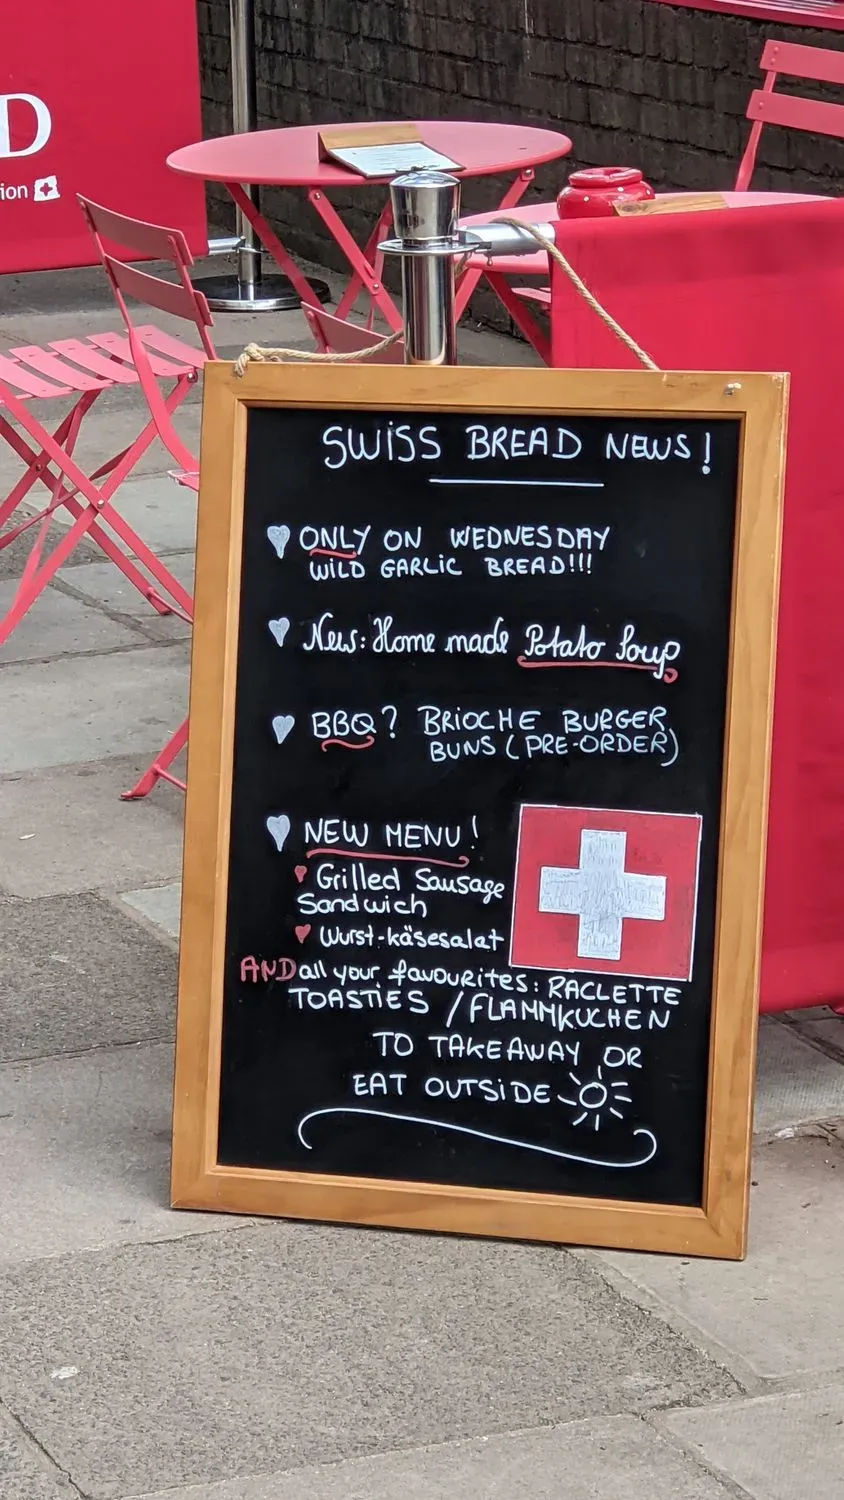 D
ion
SWISS BREAD NEWS!
ONLY ON WEDNESDAY
WILD GARLIC BREAD!!!
New: Home made Potato Soup
BBQ? BRIOCHE BURGER
BUNS (PRE-ORDER)
NEW MENU!
Grilled Sausage
Sandwich
Wurst-käsesalat
AND all your favourites: RACLETTE
TOASTIES / FLAMMKUCHEN
TO TAKEAWAY OR
EAT OUTSIDE